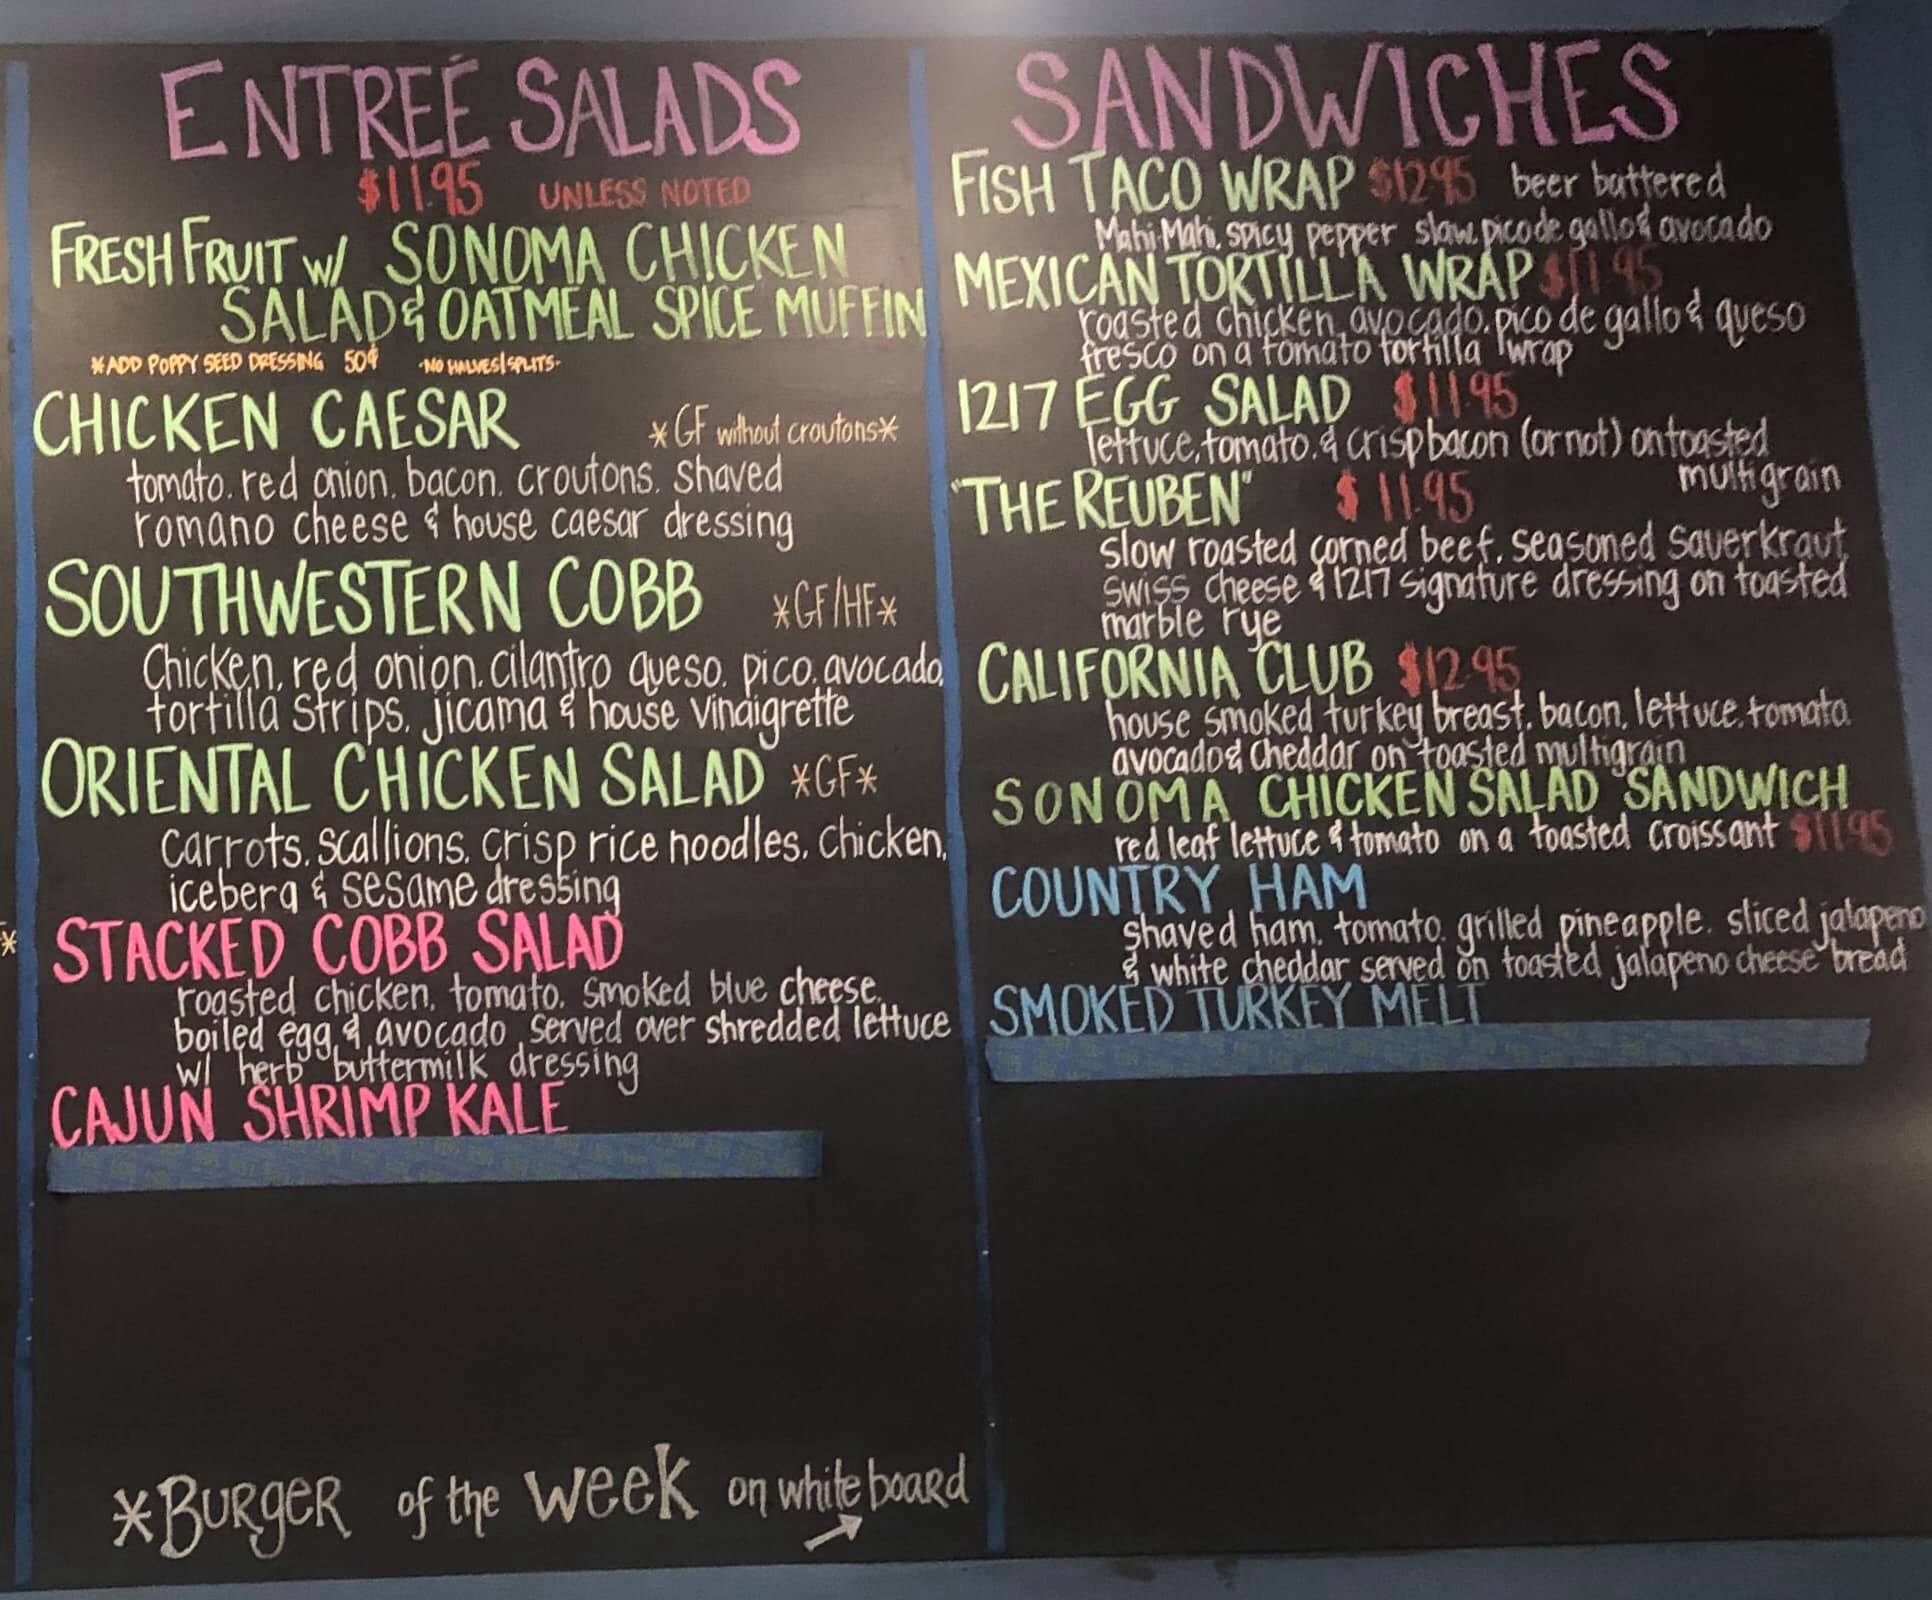 ENTREÉ SALADS
$11.95 UNLESS NOTED
FRESH FRUIT w/ SONOMA CHICKEN
SALAD & OATMEAL SPICE MUFFIN
*ADD POPPY SEED DRESSING 50¢ -NO HALVES/SPLITS-
CHICKEN CAESAR *GF without croutons*
tomato, red onion, bacon, croutons, shaved
romano cheese & house caesar dressing
SOUTHWESTERN COBB *GF/HF*
Chicken, red onion, cilantro queso, pico, avocado,
tortilla strips, jicama & house vinaigrette
ORIENTAL CHICKEN SALAD *GF*
carrots, scallions, crisp rice noodles, chicken,
iceberg & sesame dressing
STACKED COBB SALAD
roasted chicken, tomato, smoked blue cheese,
boiled egg & avocado served over shredded lettuce
w/ herb buttermilk dressing
CAJUN SHRIMP KALE
*BURGER of the week on white board
SANDWICHES
FISH TACO WRAP $12.95 beer battered
Mahi-Mahi, spicy pepper slaw, pico de gallo & avocado
MEXICAN TORTILLA WRAP $11.95
roasted chicken, avocado, pico de gallo & queso
fresco on a tomato tortilla wrap
1217 EGG SALAD $11.95
lettuce, tomato, & crisp bacon (or not) on toasted
multigrain
"THE REUBEN" $11.95
slow roasted corned beef, seasoned sauerkraut,
swiss cheese & 1217 signature dressing on toasted
marble rye
CALIFORNIA CLUB $12.95
house smoked turkey breast, bacon, lettuce, tomato,
avocado & cheddar on toasted multigrain
SONOMA CHICKEN SALAD SANDWICH
red leaf lettuce & tomato on a toasted croissant $11.95
COUNTRY HAM
shaved ham, tomato, grilled pineapple, sliced jalapeno
& white cheddar served on toasted jalapeno cheese bread
SMOKED TURKEY MELT